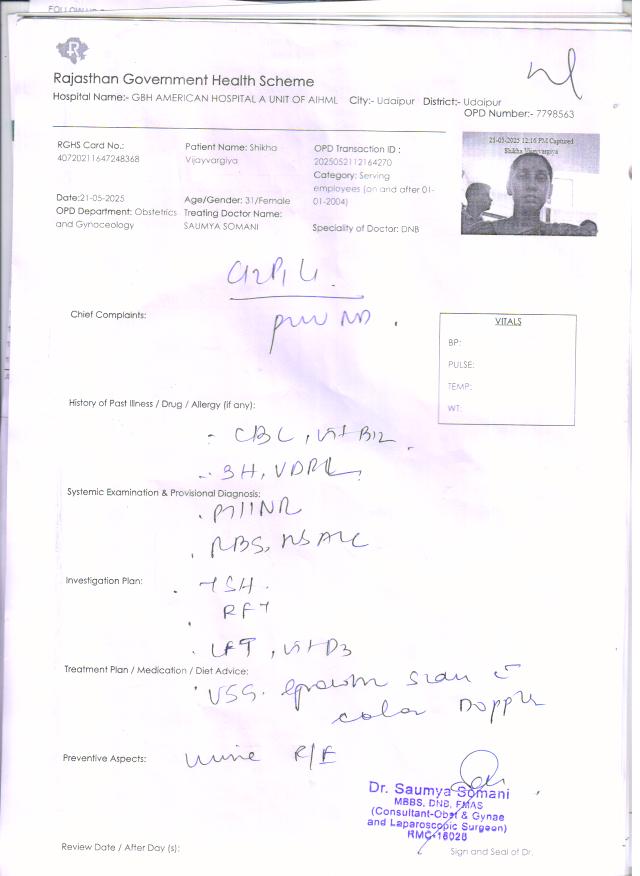 Rajasthan Government Health Scheme
Hospital Name:- GBH AMERICAN HOSPITAL A UNIT OF AIHML City:- Udaipur District:- Udaipur
OPD Number:- 7798563
RGHS Card No.: 40720211647248368
Patient Name: Shikha Vijayvargiya
OPD Transaction ID : 2025052112164270
Category: Serving employees (on and after 01-01-2004)
21-05-2025 12:16 PM Captured
Shikha Vijayvargiya
Date:21-05-2025
Age/Gender: 31/Female
OPD Department: Obstetrics and Gynaceology
Treating Doctor Name: SAUMYA SOMANI
Speciality of Doctor: DNB
G2P1L1.
Chief Complaints:
VITALS
BP:
PULSE:
TEMP:
WT:
History of Past Illness / Drug / Allergy (if any):
- CBC, Vit B12
VDRL
Systemic Examination & Provisional Diagnosis:
PT INR
. RBS,
Investigation Plan:
. TSH.
. RFT
. LFT, Vit D3
Treatment Plan / Medication / Diet Advice:
. USG. growth scan c̄
color Doppler
Preventive Aspects:
urine R/E
Dr. Saumya Somani
MBBS, DNB, FMAS
(Consultant-Obst & Gynae
and Laparoscopic Surgeon)
RMC-18028
Review Date / After Day (s):
Sign and Seal of Dr.